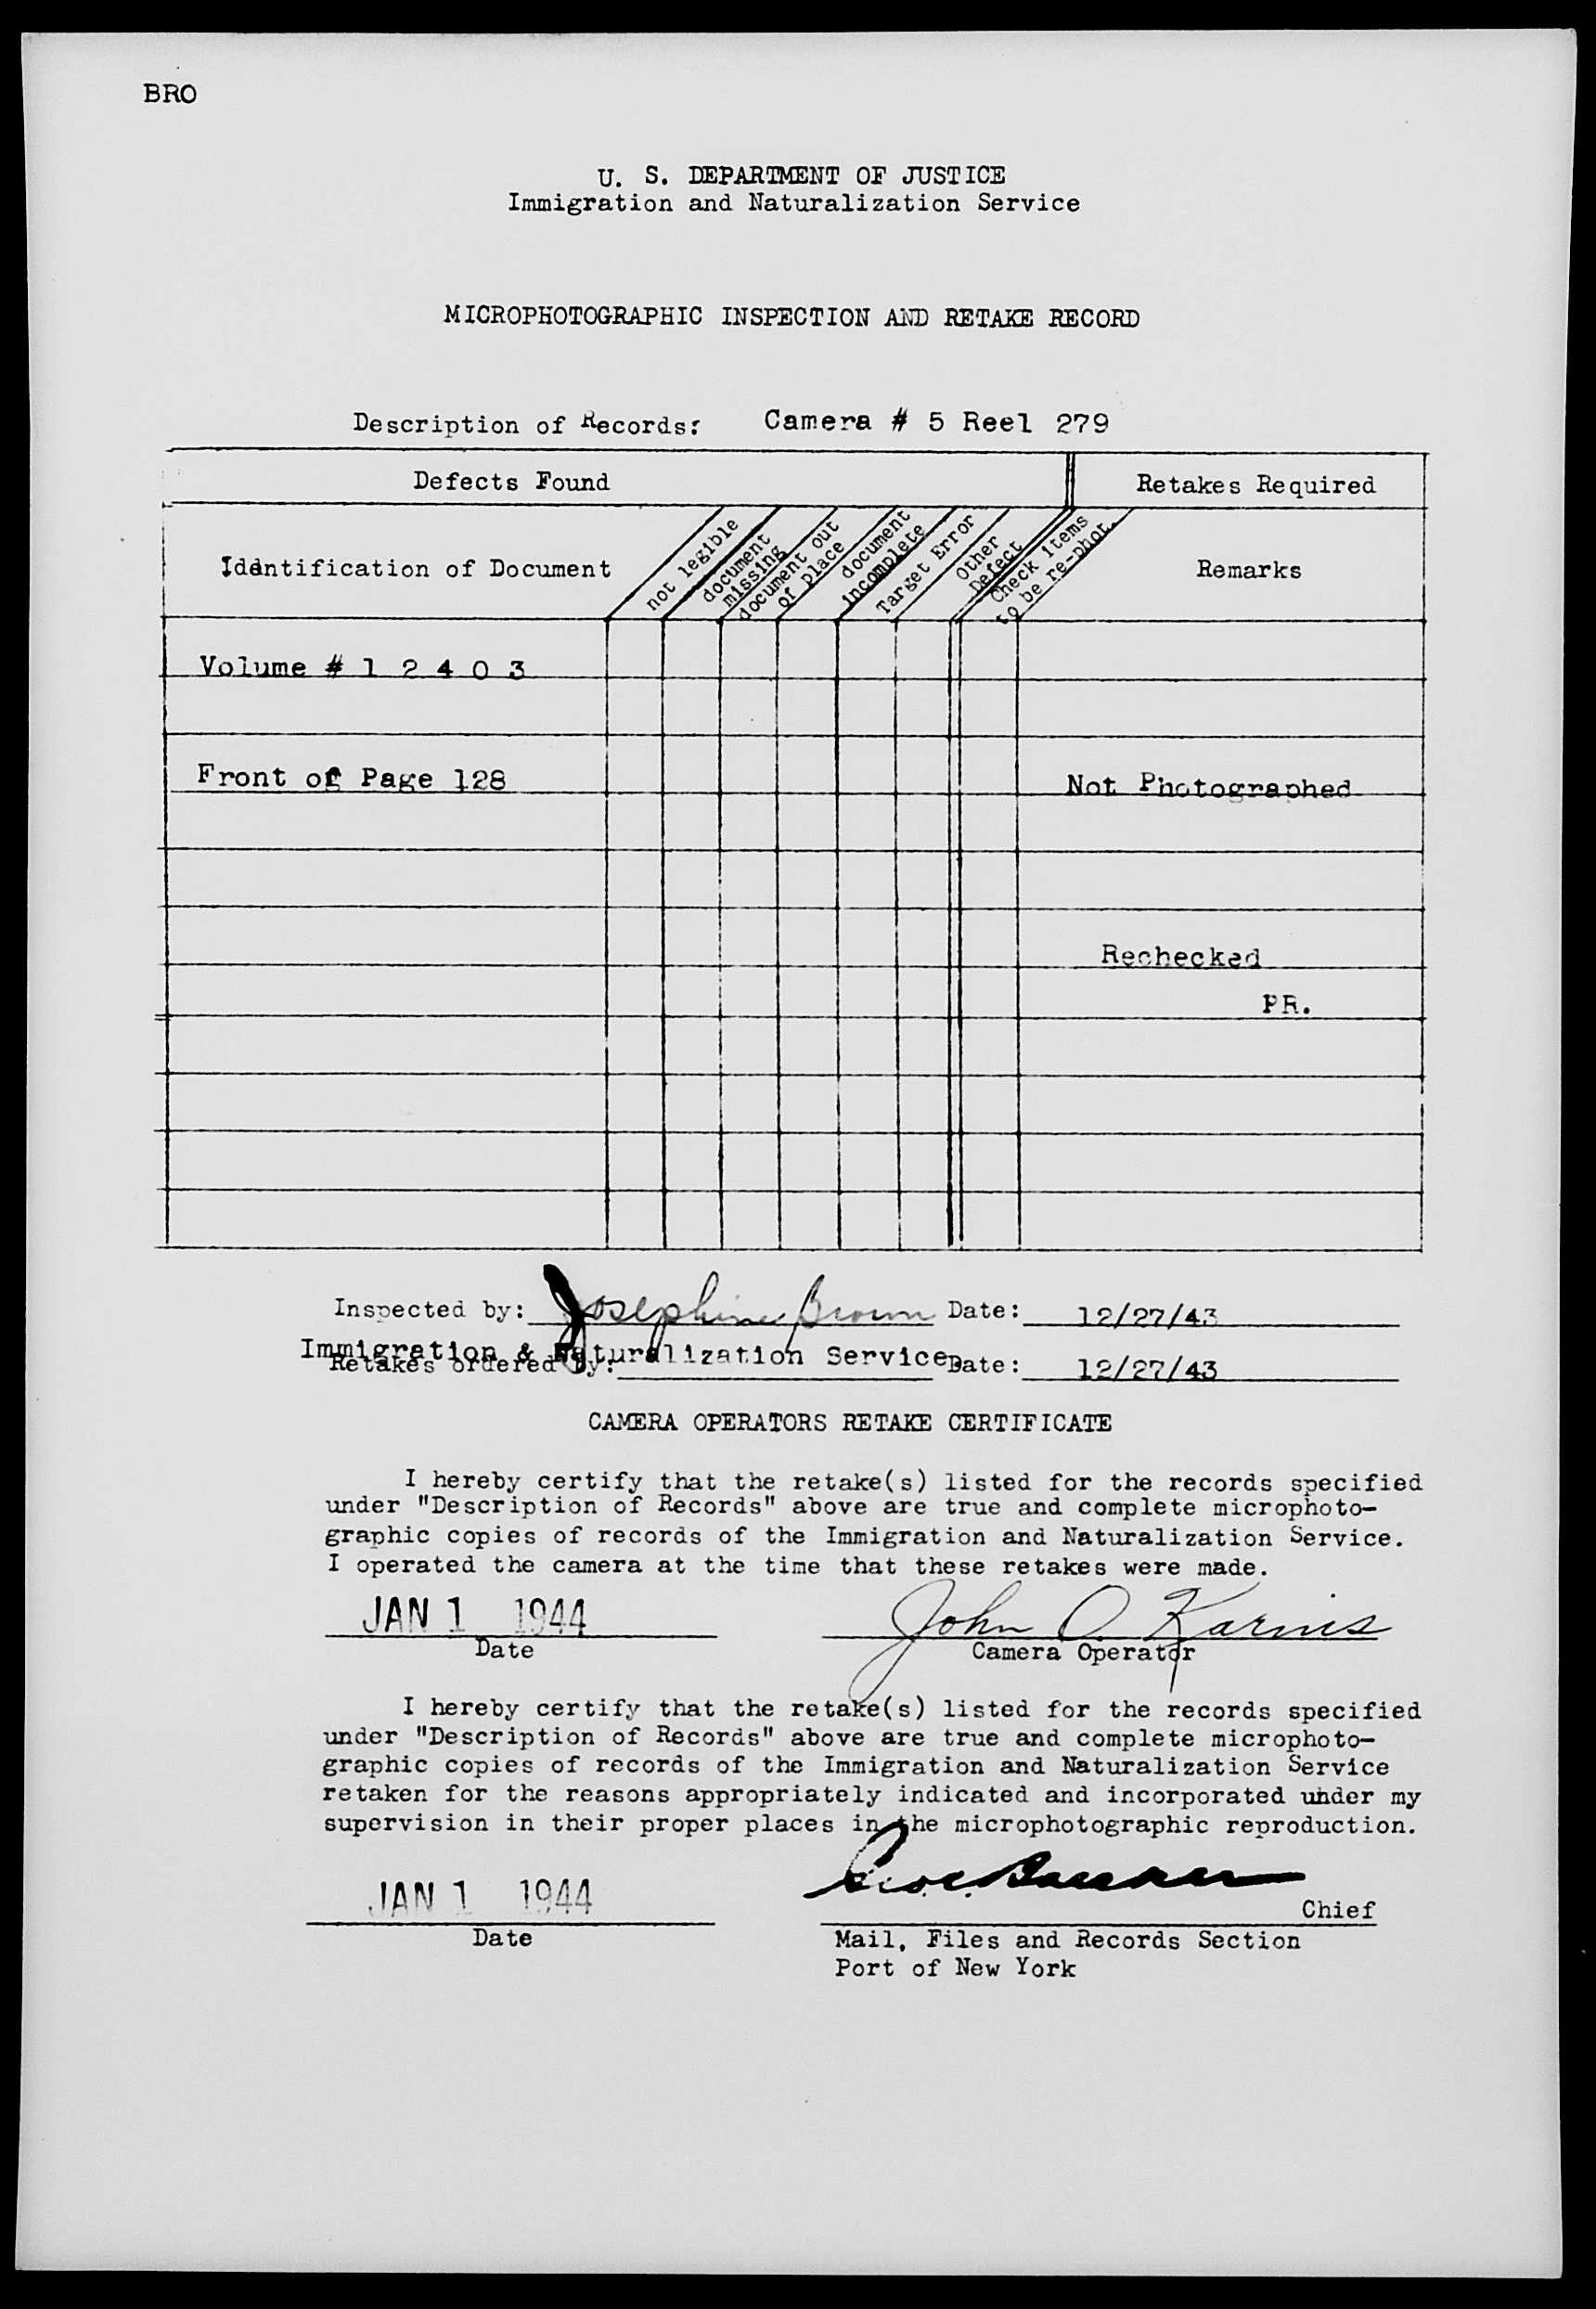 BRO
U. S. DEPARTMENT OF JUSTICE
Immigration and Naturalization Service
MICROPHOTOGRAPHIC INSPECTION AND RETAKE RECORD
Description of Records: Camera # 5 Reel 279
Defects Found
Retakes Required
Identification of Document
not legible
document
missing
document out
of place
document
incomplete
Target Error
Other
Defect
Check items
to be re-phot.
Remarks
Volume # 1 2 4 0 3
Front of Page 128
Not Photographed
Rechecked
PR.
Inspected by: Josephine Brown Date: 12/27/43
Immigration & Naturalization Service
Retakes ordered by: Date: 12/27/43
CAMERA OPERATORS RETAKE CERTIFICATE
I hereby certify that the retake(s) listed for the records specified
under "Description of Records" above are true and complete microphoto-
graphic copies of records of the Immigration and Naturalization Service.
I operated the camera at the time that these retakes were made.
JAN 1 1944 John O. Karnis
Date Camera Operator
I hereby certify that the retake(s) listed for the records specified
under "Description of Records" above are true and complete microphoto-
graphic copies of records of the Immigration and Naturalization Service
retaken for the reasons appropriately indicated and incorporated under my
supervision in their proper places in the microphotographic reproduction.
JAN 1 1944
Chief
Date
Mail, Files and Records Section
Port of New York